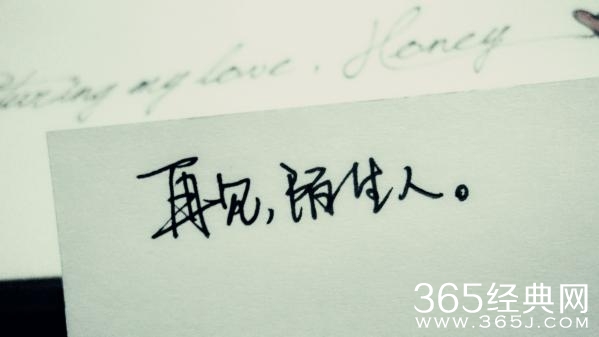 my love. Honey
再见,陌生人。
365经典网
WWW.365J.COM